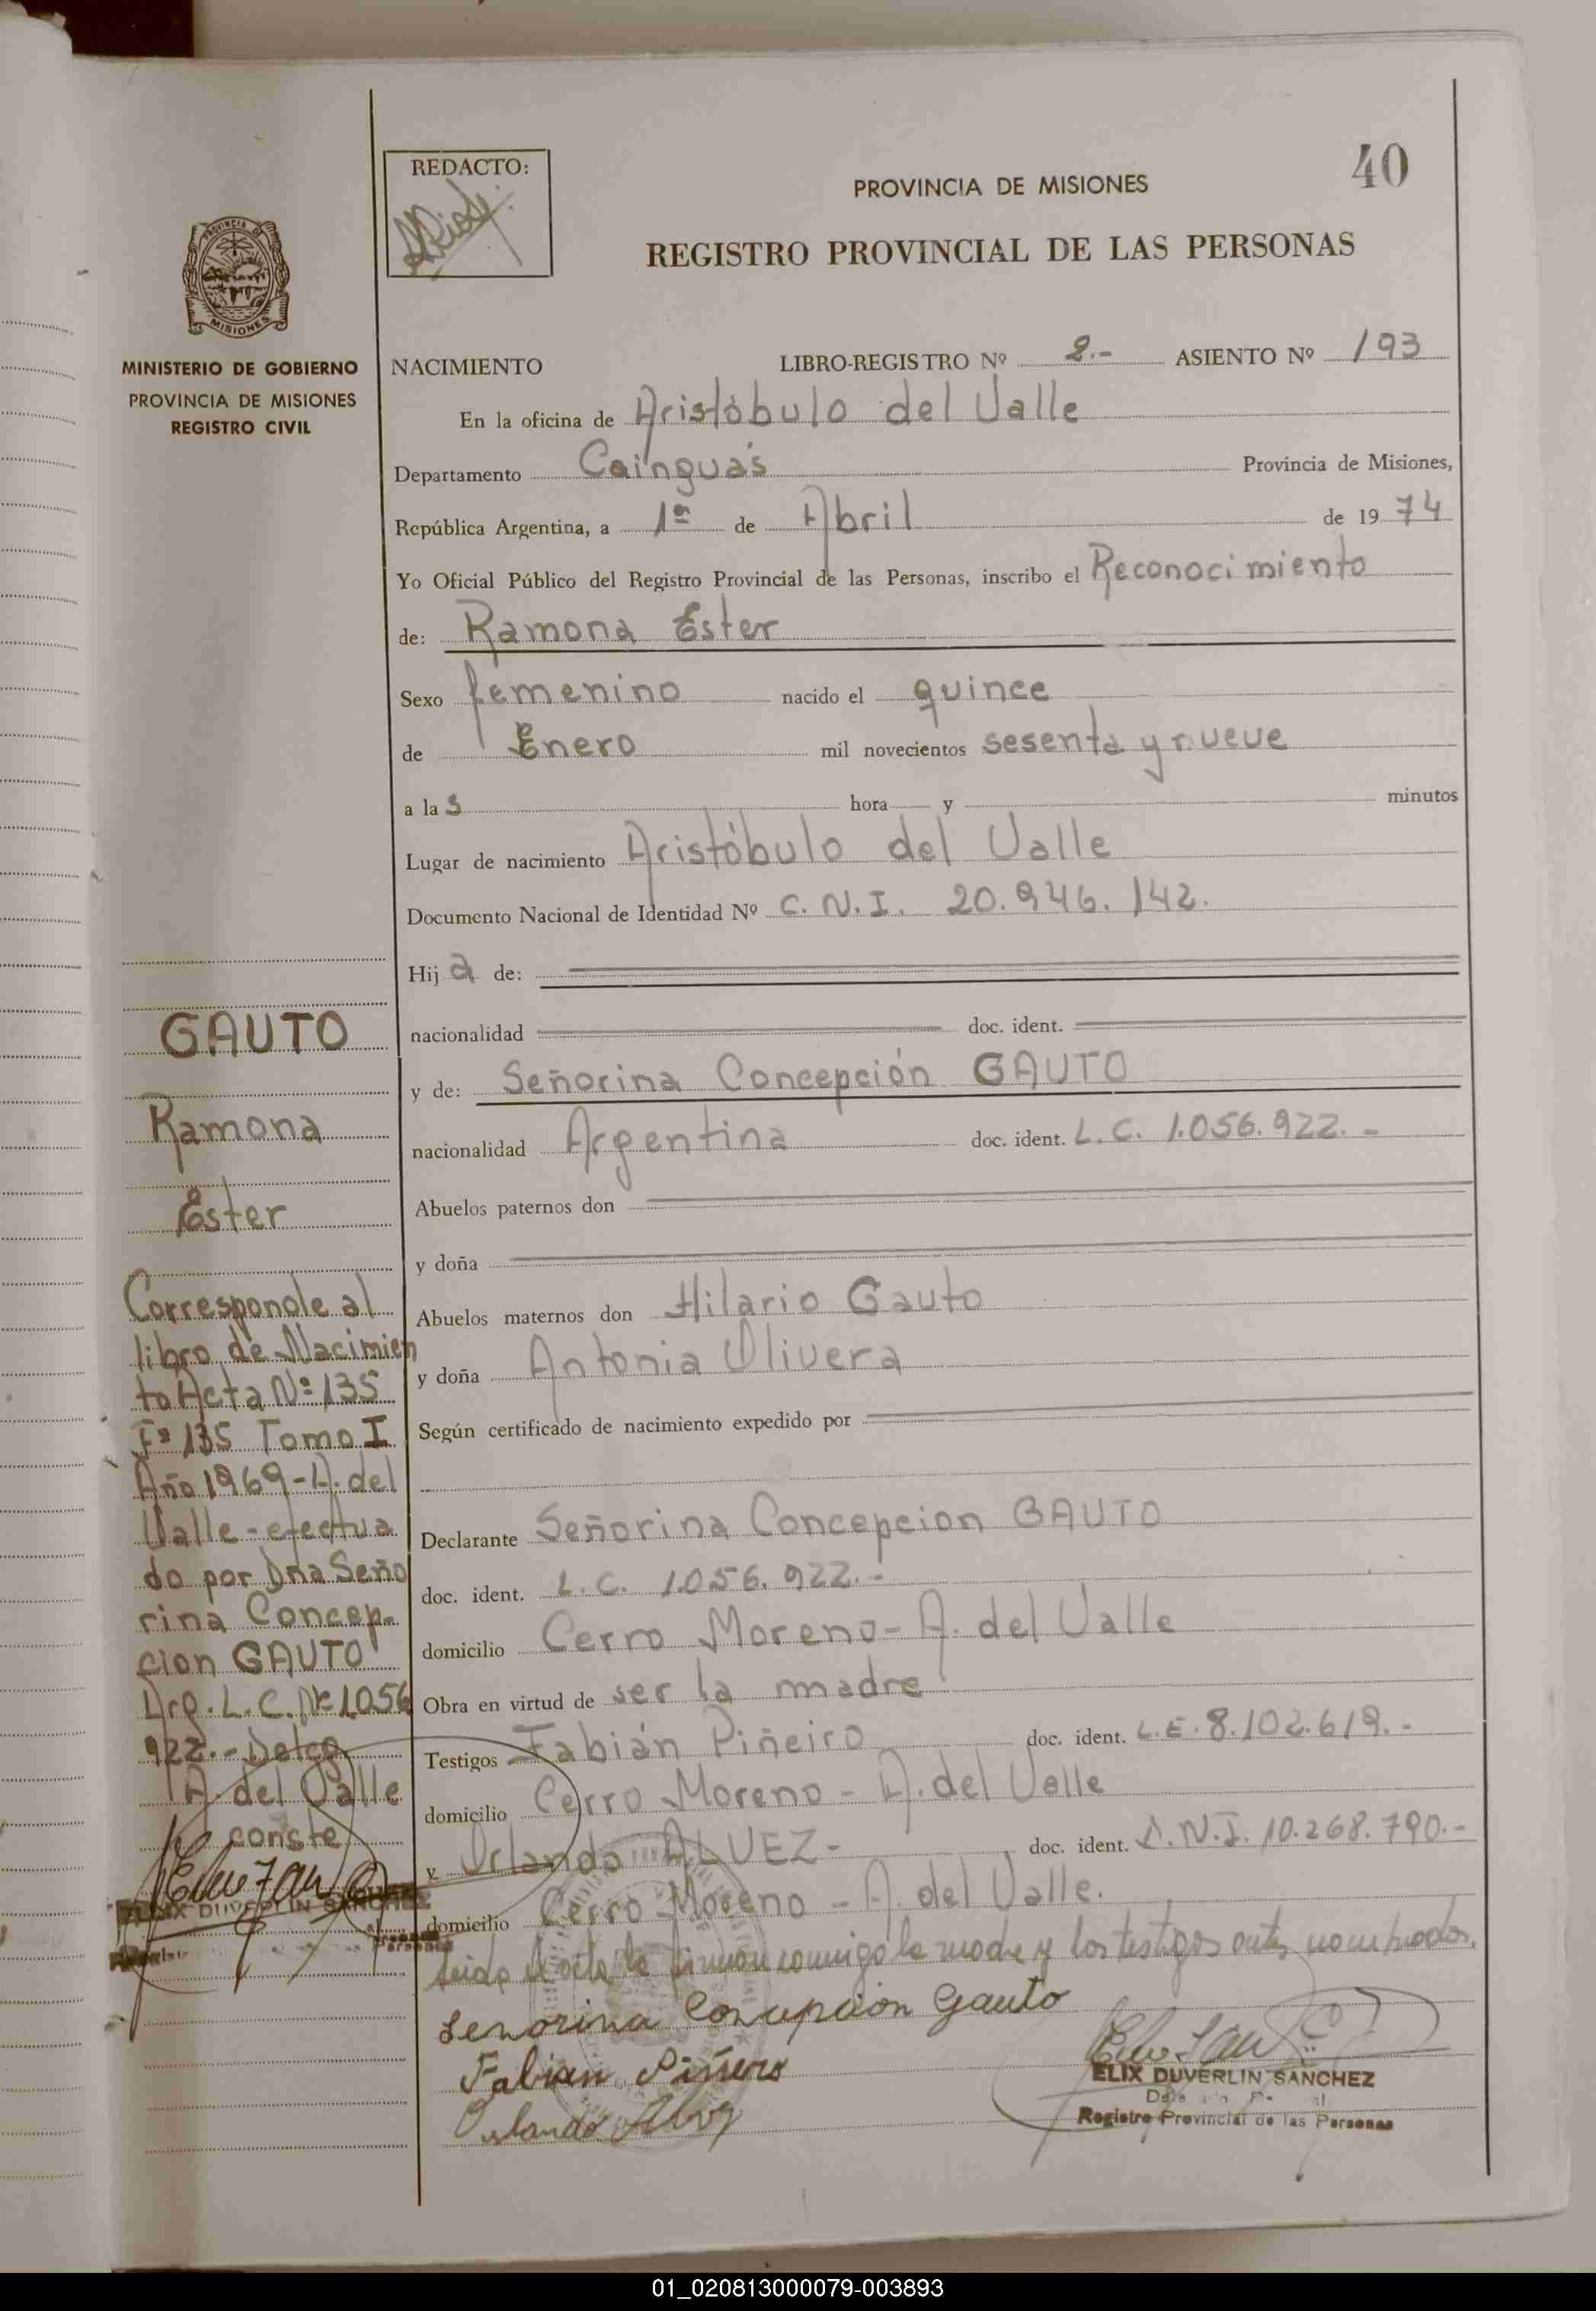 40
REDACTO:
PROVINCIA DE MISIONES
REGISTRO PROVINCIAL DE LAS PERSONAS
PROVINCIA DE
MISIONES
MINISTERIO DE GOBIERNO
PROVINCIA DE MISIONES
REGISTRO CIVIL
NACIMIENTO LIBRO-REGISTRO Nº 2.- ASIENTO Nº 193
En la oficina de Aristóbulo del Valle
Departamento Cainguás Provincia de Misiones,
República Argentina, a 1º de Abril de 1974
Yo Oficial Público del Registro Provincial de las Personas, inscribo el Reconocimiento
de: Ramona Ester
Sexo femenino nacido el quince
de Enero mil novecientos sesenta y nueve
a las hora y minutos
Lugar de nacimiento Aristóbulo del Valle
Documento Nacional de Identidad Nº C.N.I. 20.946.142.
Hija de:
nacionalidad doc. ident.
y de: Señorina Concepción GAUTO
nacionalidad Argentina doc. ident. L.C. 1.056.922.-
Abuelos paternos don
y doña
Abuelos maternos don Hilario Gauto
y doña Antonia Olivera
Según certificado de nacimiento expedido por
Declarante Señorina Concepcion GAUTO
doc. ident. L.C. 1.056.922.-
domicilio Cerro Moreno - A. del Valle
Obra en virtud de ser la madre
Testigos Fabián Piñeiro doc. ident. L.E. 8.102.619.-
domicilio Cerro Moreno - A. del Valle
y Orlando ALVEZ- doc. ident. D.N.I. 10.268.790.-
domicilio Cerro Moreno - A. del Valle.
leida el acta la firman conmigo la madre y los testigos antes nombrados.
Señorina Concepción Gauto
Fabian Piñeiro
Orlando Alvez
ELIX DUVERLIN SANCHEZ
Registro Provincial de las Personas
GAUTO
Ramona
Ester
Corresponde al
libro de Nacimien
to Acta Nº 135
Fº 135 Tomo I
Año 1969 - A. del
Valle - efectua
do por Dña Seño
rina Concep-
cion GAUTO
Arg. L.C. Nº 1.056
922.- Deleg.
A. del Valle
conste
ELIX DUVERLIN SANCHEZ
01_020813000079-003893